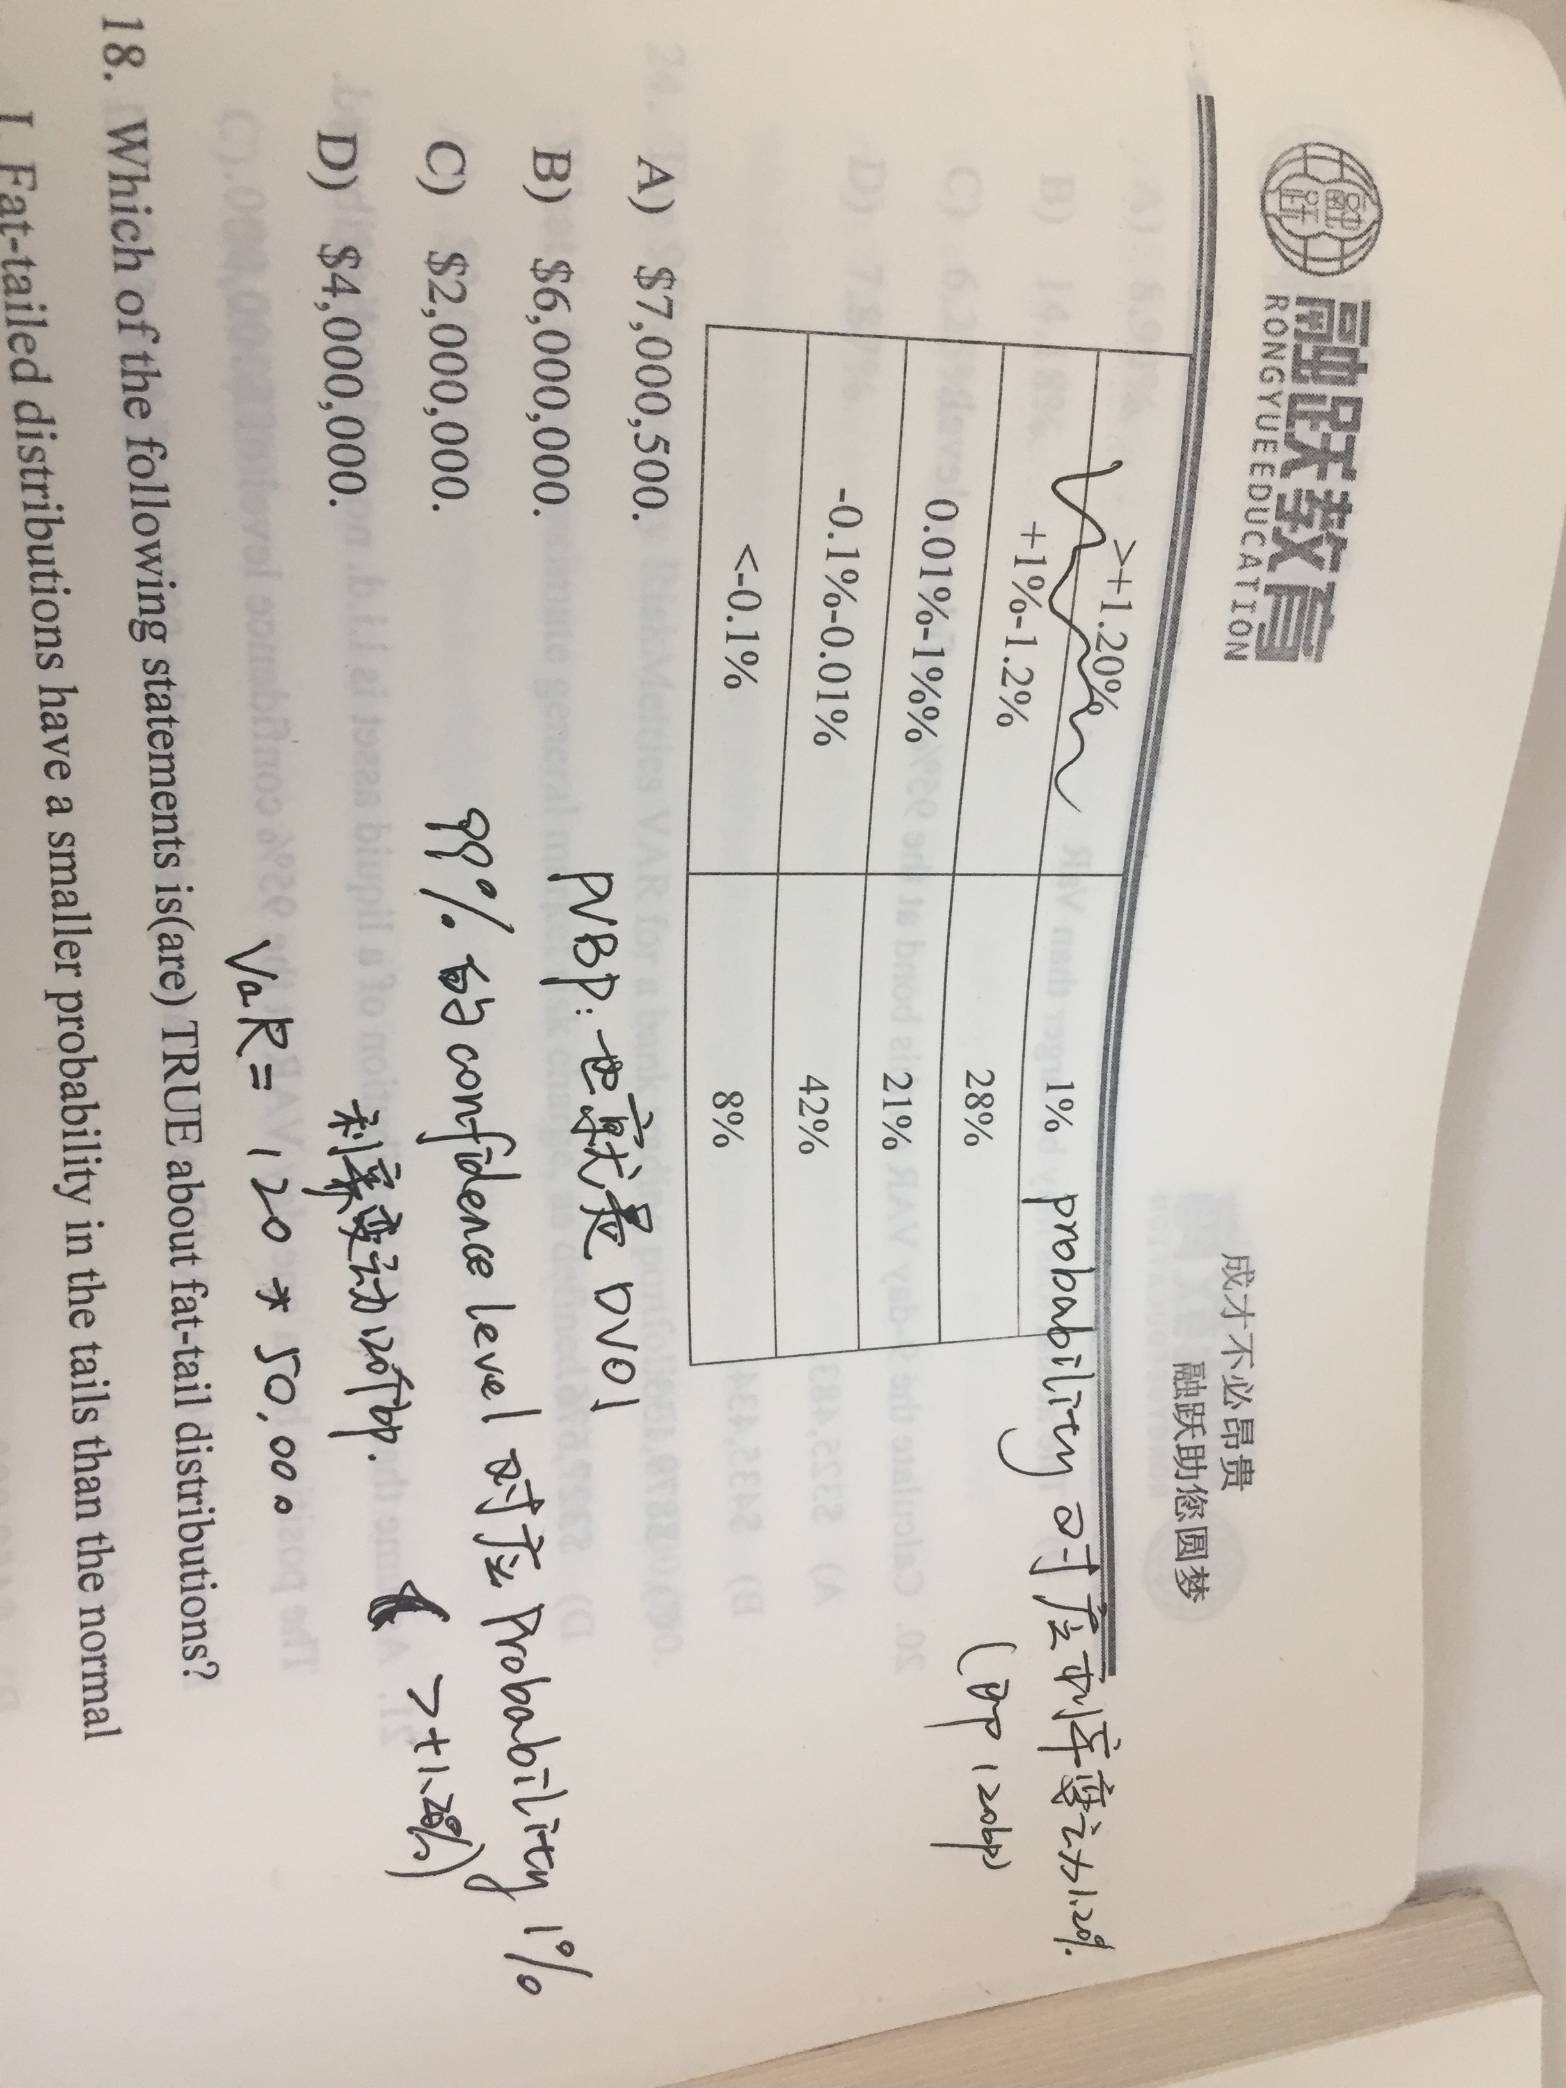 融跃教育
RONGYUE EDUCATION
成才不必昂贵
融跃助您圆梦
>+1.20% 1%
+1%-1.2% 28%
0.01%-1%% 21%
-0.1%-0.01% 42%
<-0.1% 8%
probability 对应利率变动1.20%.
(即120bp)
A) $7,000,500.
B) $6,000,000.
C) $2,000,000.
D) $4,000,000.
PVBP: 也就是 DV01
99%的confidence level 对应 probability 1%
(>+1.20%)
利率变动120个bp.
VaR= 120 * 50,000
18. Which of the following statements is(are) TRUE about fat-tail distributions?
I. Fat-tailed distributions have a smaller probability in the tails than the normal